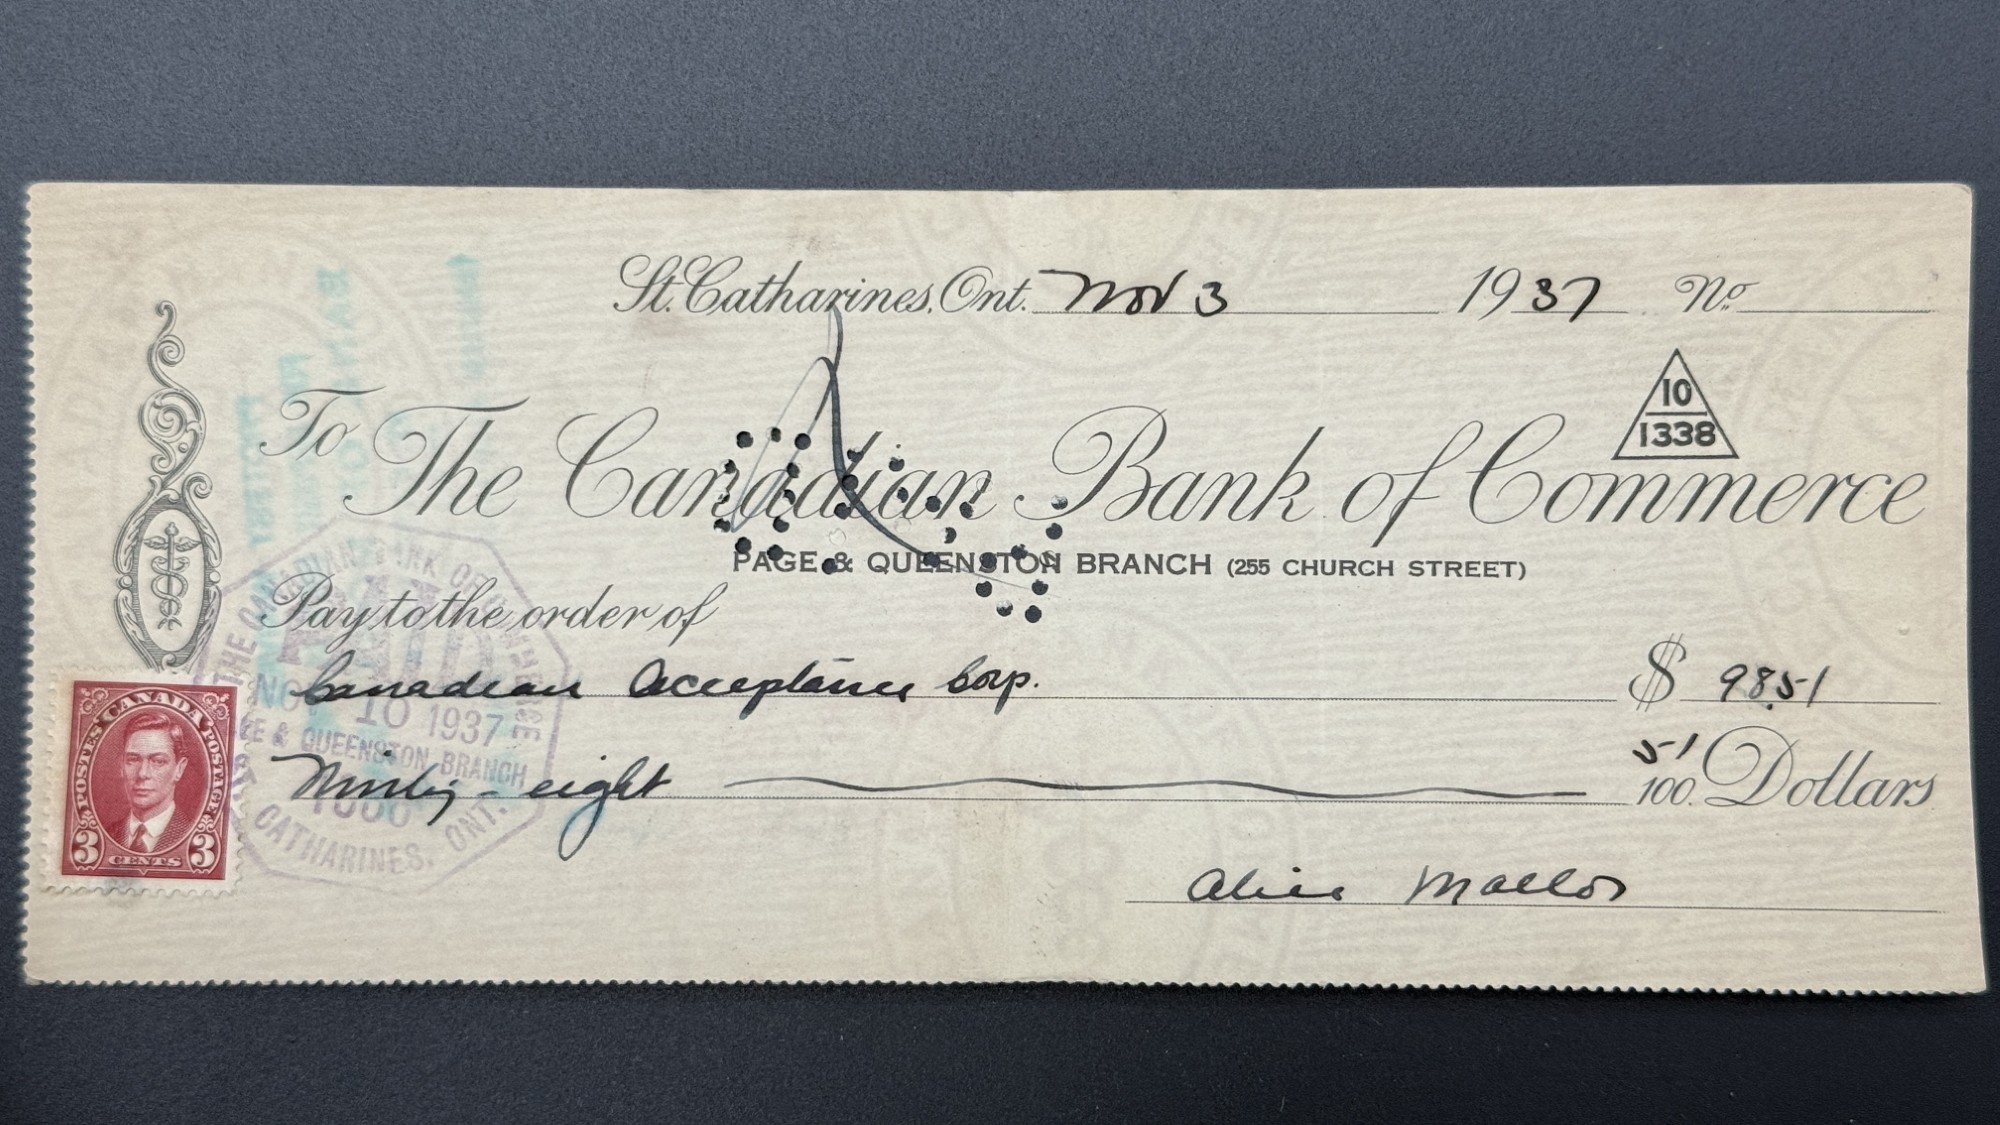 St. Catharines, Ont. Nov 3 1937 No.
10
1338
To The Canadian Bank of Commerce
PAGE & QUEENSTON BRANCH (255 CHURCH STREET)
Pay to the order of
Canadian Acceptance Corp. $ 98.51
Ninety-eight 51/100 Dollars
Alice Mallos
THE CANADIAN BANK OF COMMERCE
PAID
NOV 10 1937
PAGE & QUEENSTON BRANCH
ST. CATHARINES, ONT.
POSTES CANADA POSTAGE
3 CENTS 3